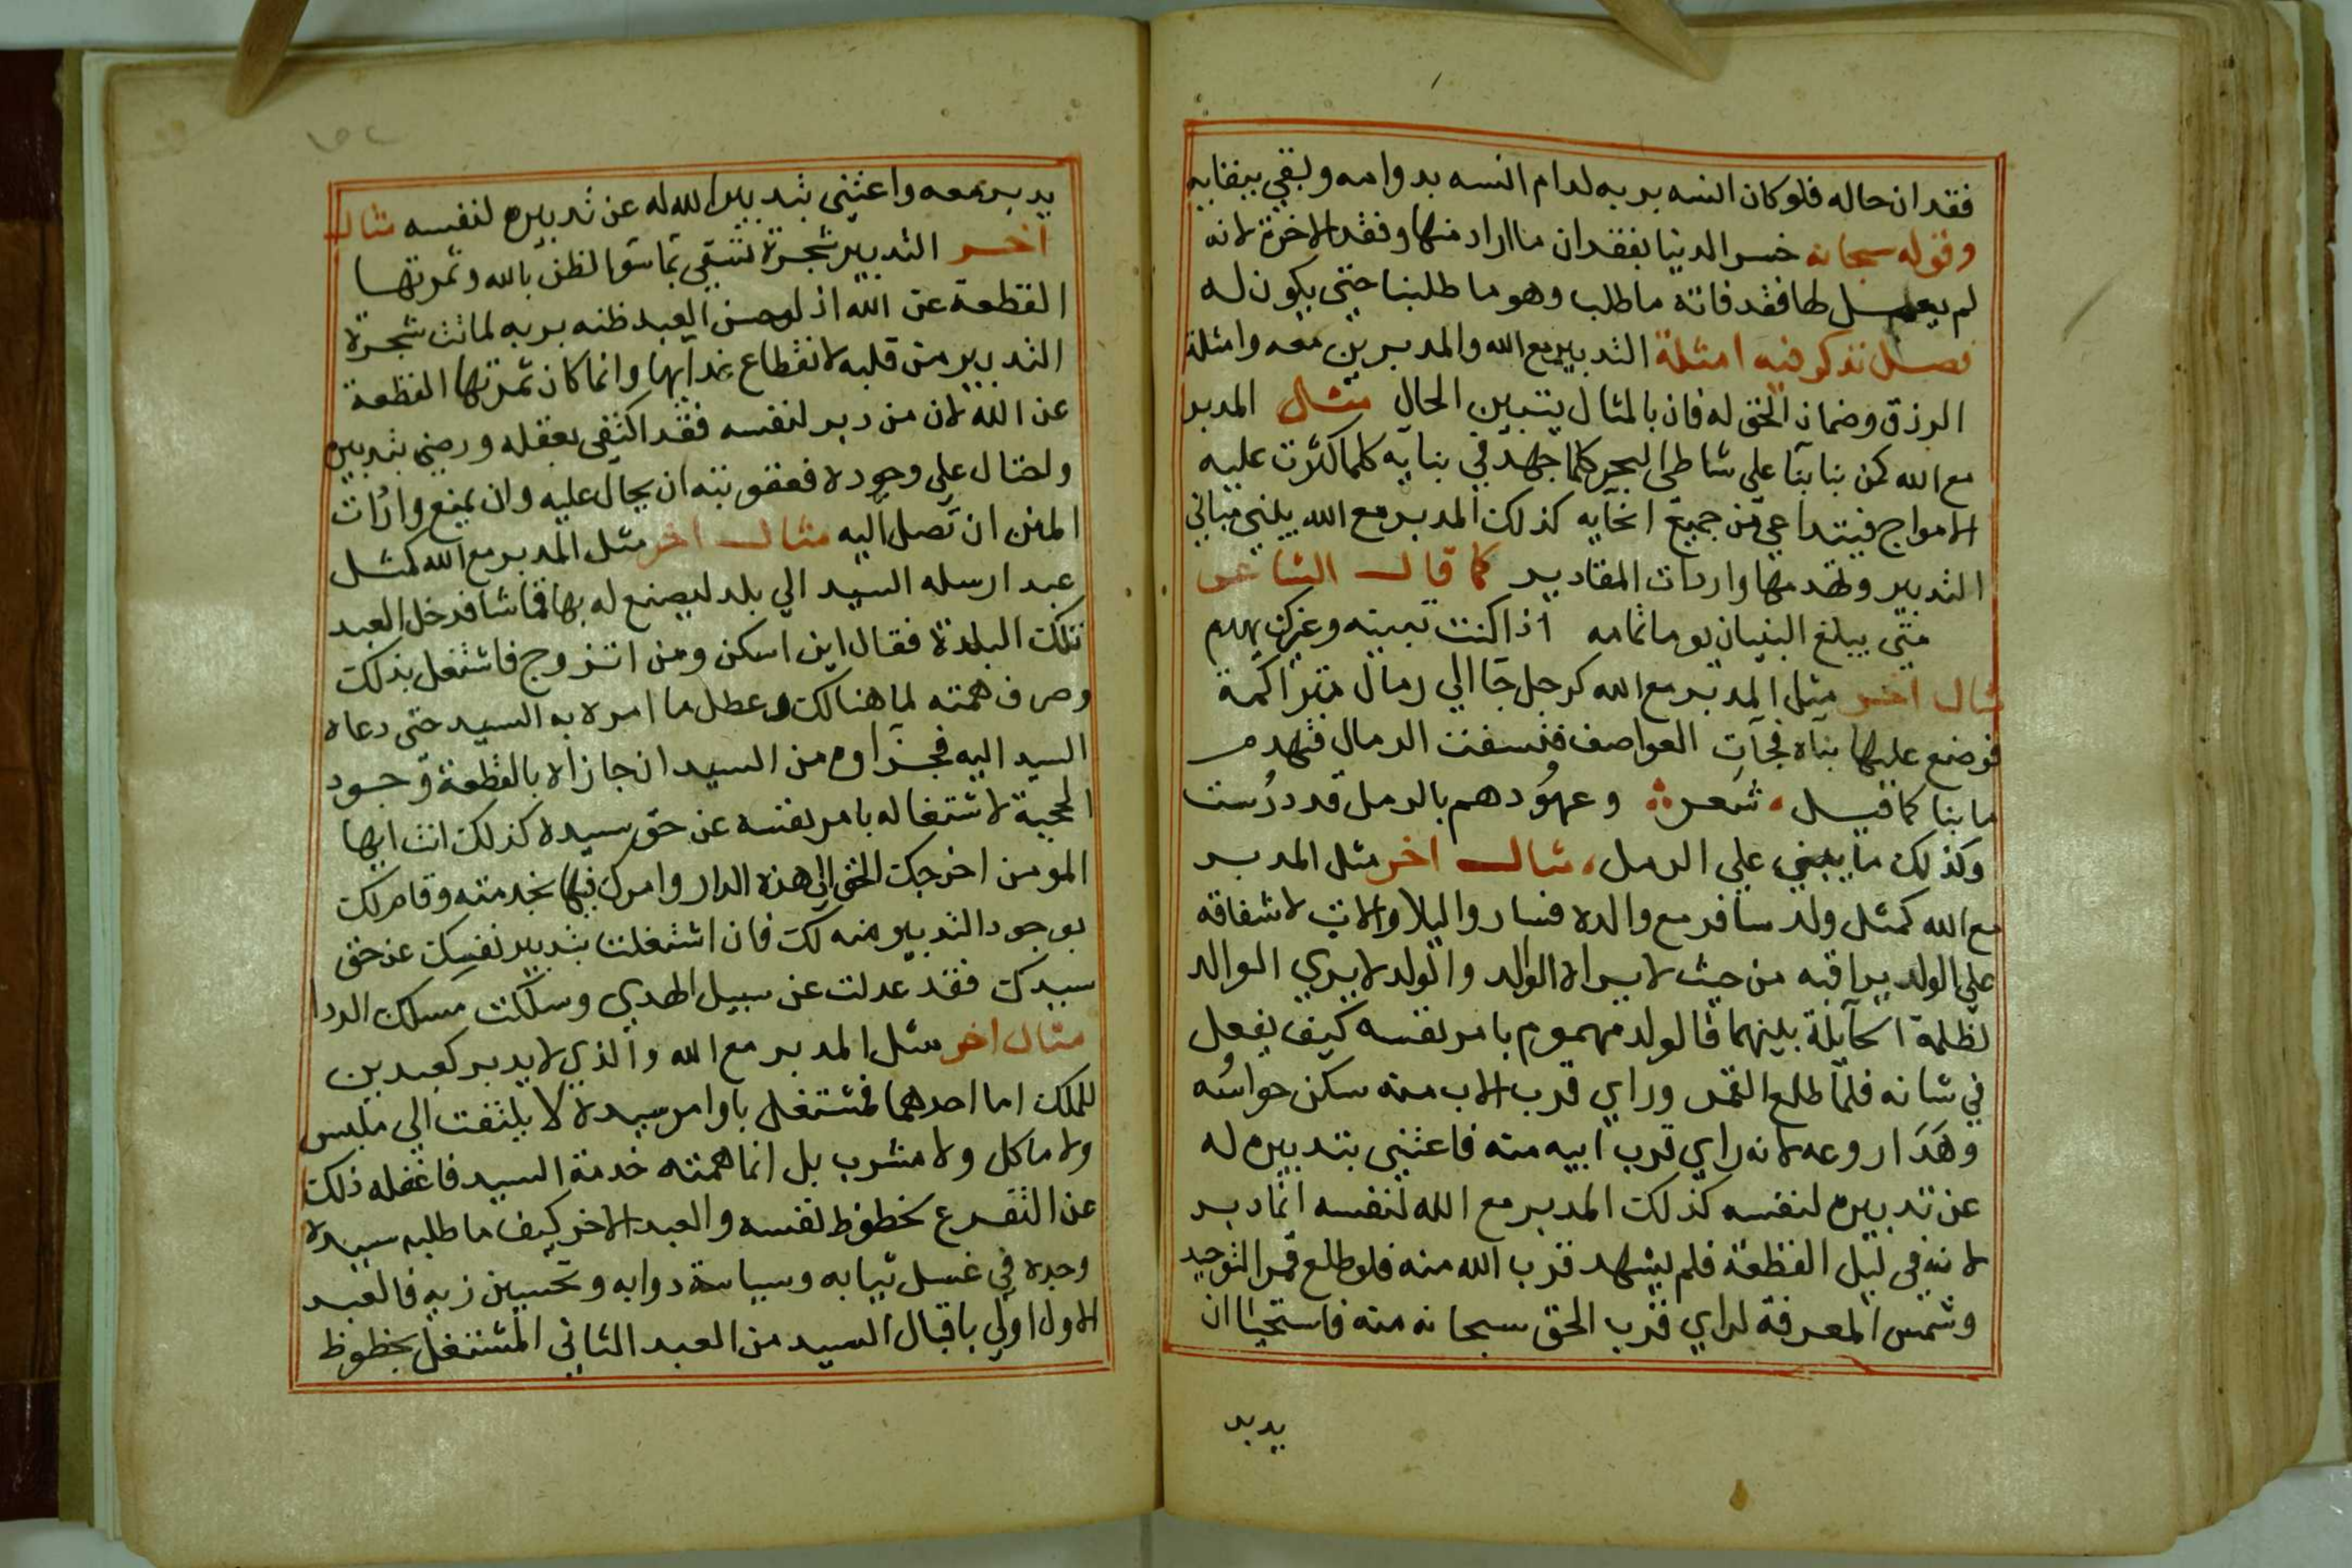 فقدان حاله فلو كان انسه بربه لدام انسه بدوامه وبقي ببقايه
وقوله سبحانه خسر الدنيا بفقدان ما اراد منها وفقد الاخرة لانه
لم يعمل لها فقد فاته ما طلب وهو ما طلبنا حتي يكون له
فصل نذكر فيه امثلة التدبير مع الله والمدبرين معه وامثلة
الرزق وضمان الحق له فان بالمثال يتبين الحال مثال المدبر
مع الله كمن بنا بنآ علي شاطي البحر كلما جهد في بنايه كلما كثرت عليه
الامواج فيتداعي من جميع انحآيه كذلك المدبر مع الله يبني مباني
التدبير وتهدمها واردات المقادير كما قال الشاعر
متي يبلغ البنيان يوما تمامه اذا كنت تبنيه وغيرك يهدم
مثال اخر مثل المدبر مع الله كرجل جآ الي رمال متراكمة
فوضع عليها بنآه فجآت العواصف فنسفت الرمال فتهدم
ما بنا كما قيل شعر وعهودهم بالرمل قد درست
وكذلك ما يبني علي الرمل مثال اخر مثل المدبر
مع الله كمثل ولد سافر مع والده فسارو اليلا والاب لاشفاقه
علي الولد يراقبه من حيث لا يراه الوالد والولد لا يري الوالد
لظلمة الحآيلة بينهما فالولد مهموم بامر نفسه كيف يفعل
في شانه فلما طلع القمر وراي قرب الاب منه سكن حواسه
وهدا روعه لانه راي قرب ابيه منه فاغتني بتدبيره له
عن تدبيره لنفسه كذلك المدبر مع الله لنفسه انما دبر
لانه في ليل القطعة فلم يشهد قرب الله منه فلو طلع قمر التوحيد
وشمس المعرفة لراي قرب الحق سبحانه منه فاستحيا ان
يدبر
يدبر معه واغتني بتدبير الله له عن تدبيره لنفسه مثال
اخر التدبير شجرة تسقي بمآ سؤ الظن بالله وثمرتها
القطعة عن الله اذ لو حسن العبد ظنه بربه لماتت شجرة
التدبير من قلبه لانقطاع غدآيها وانما كان ثمرتها القطعة
عن الله لان من دبر لنفسه فقد اكتفي بعقله ورضي بتدبيره
واحتال علي وجوده فعقوبته ان يحال عليه وان يمنع واردات
المنن ان تصل اليه مثال اخر مثل المدبر مع الله كمثل
عبد ارسله السيد الي بلد ليصنع له بها قماشا فدخل العبد
تلك البلدة فقال اين اسكن ومن اتزوج فاشتغل بذلك
وصرف همته لما هنالك وعطل ما امره به السيد حتي دعاه
السيد اليه فجزآوه من السيد ان جازاه بالقطعة وجود
الحجبة لاشتغاله بامر نفسه عن حق سيده كذلك انت ايها
المومن اخرجك الحق الي هذه الدار وامرك فيها بخدمته وقام لك
بوجود التدبير منه لك فان اشتغلت بتدبير نفسك عن حق
سيدك فقد عدلت عن سبيل الهدي وسلكت مسلك الردا
مثال اخر مثل المدبر مع الله والذي لا يدبر كعبدين
للملك اما احدهما فمشتغل باوامر سيده لا يلتفت الي ملبس
ولا ماكل ولا مشرب بل انما همته خدمة السيد فاغفله ذلك
عن التفرع لحظوظ نفسه والعبد الاخر كيف ما طلبه سيده
وجده في غسل ثيابه وسياسة دوابه وتحسين زيه فالعبد
الاول اولي باقبال السيد من العبد الثاني المشتغل بحظوظ